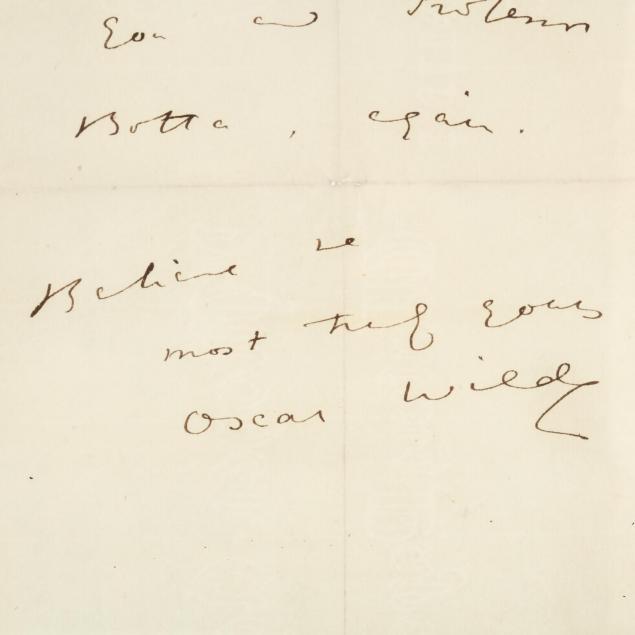 you and Professor
Botta, again.
Believe me
most truly yours
Oscar Wilde